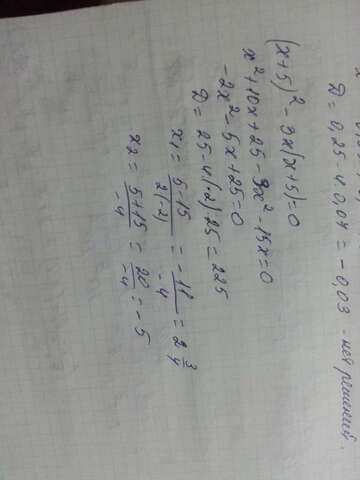 D = 0,25 - 4·0,07 = -0,03 - нет решений.
(x+5)² - 3x(x+5)=0
x²+10x+25-3x²-15x=0
-2x²-5x+25=0
D = 25-4·(-2)·25=225
x₁ = (5-15)/(2·(-2)) = -11/-4 = 2 3/4
x₂ = (5+15)/-4 = 20/-4 = -5